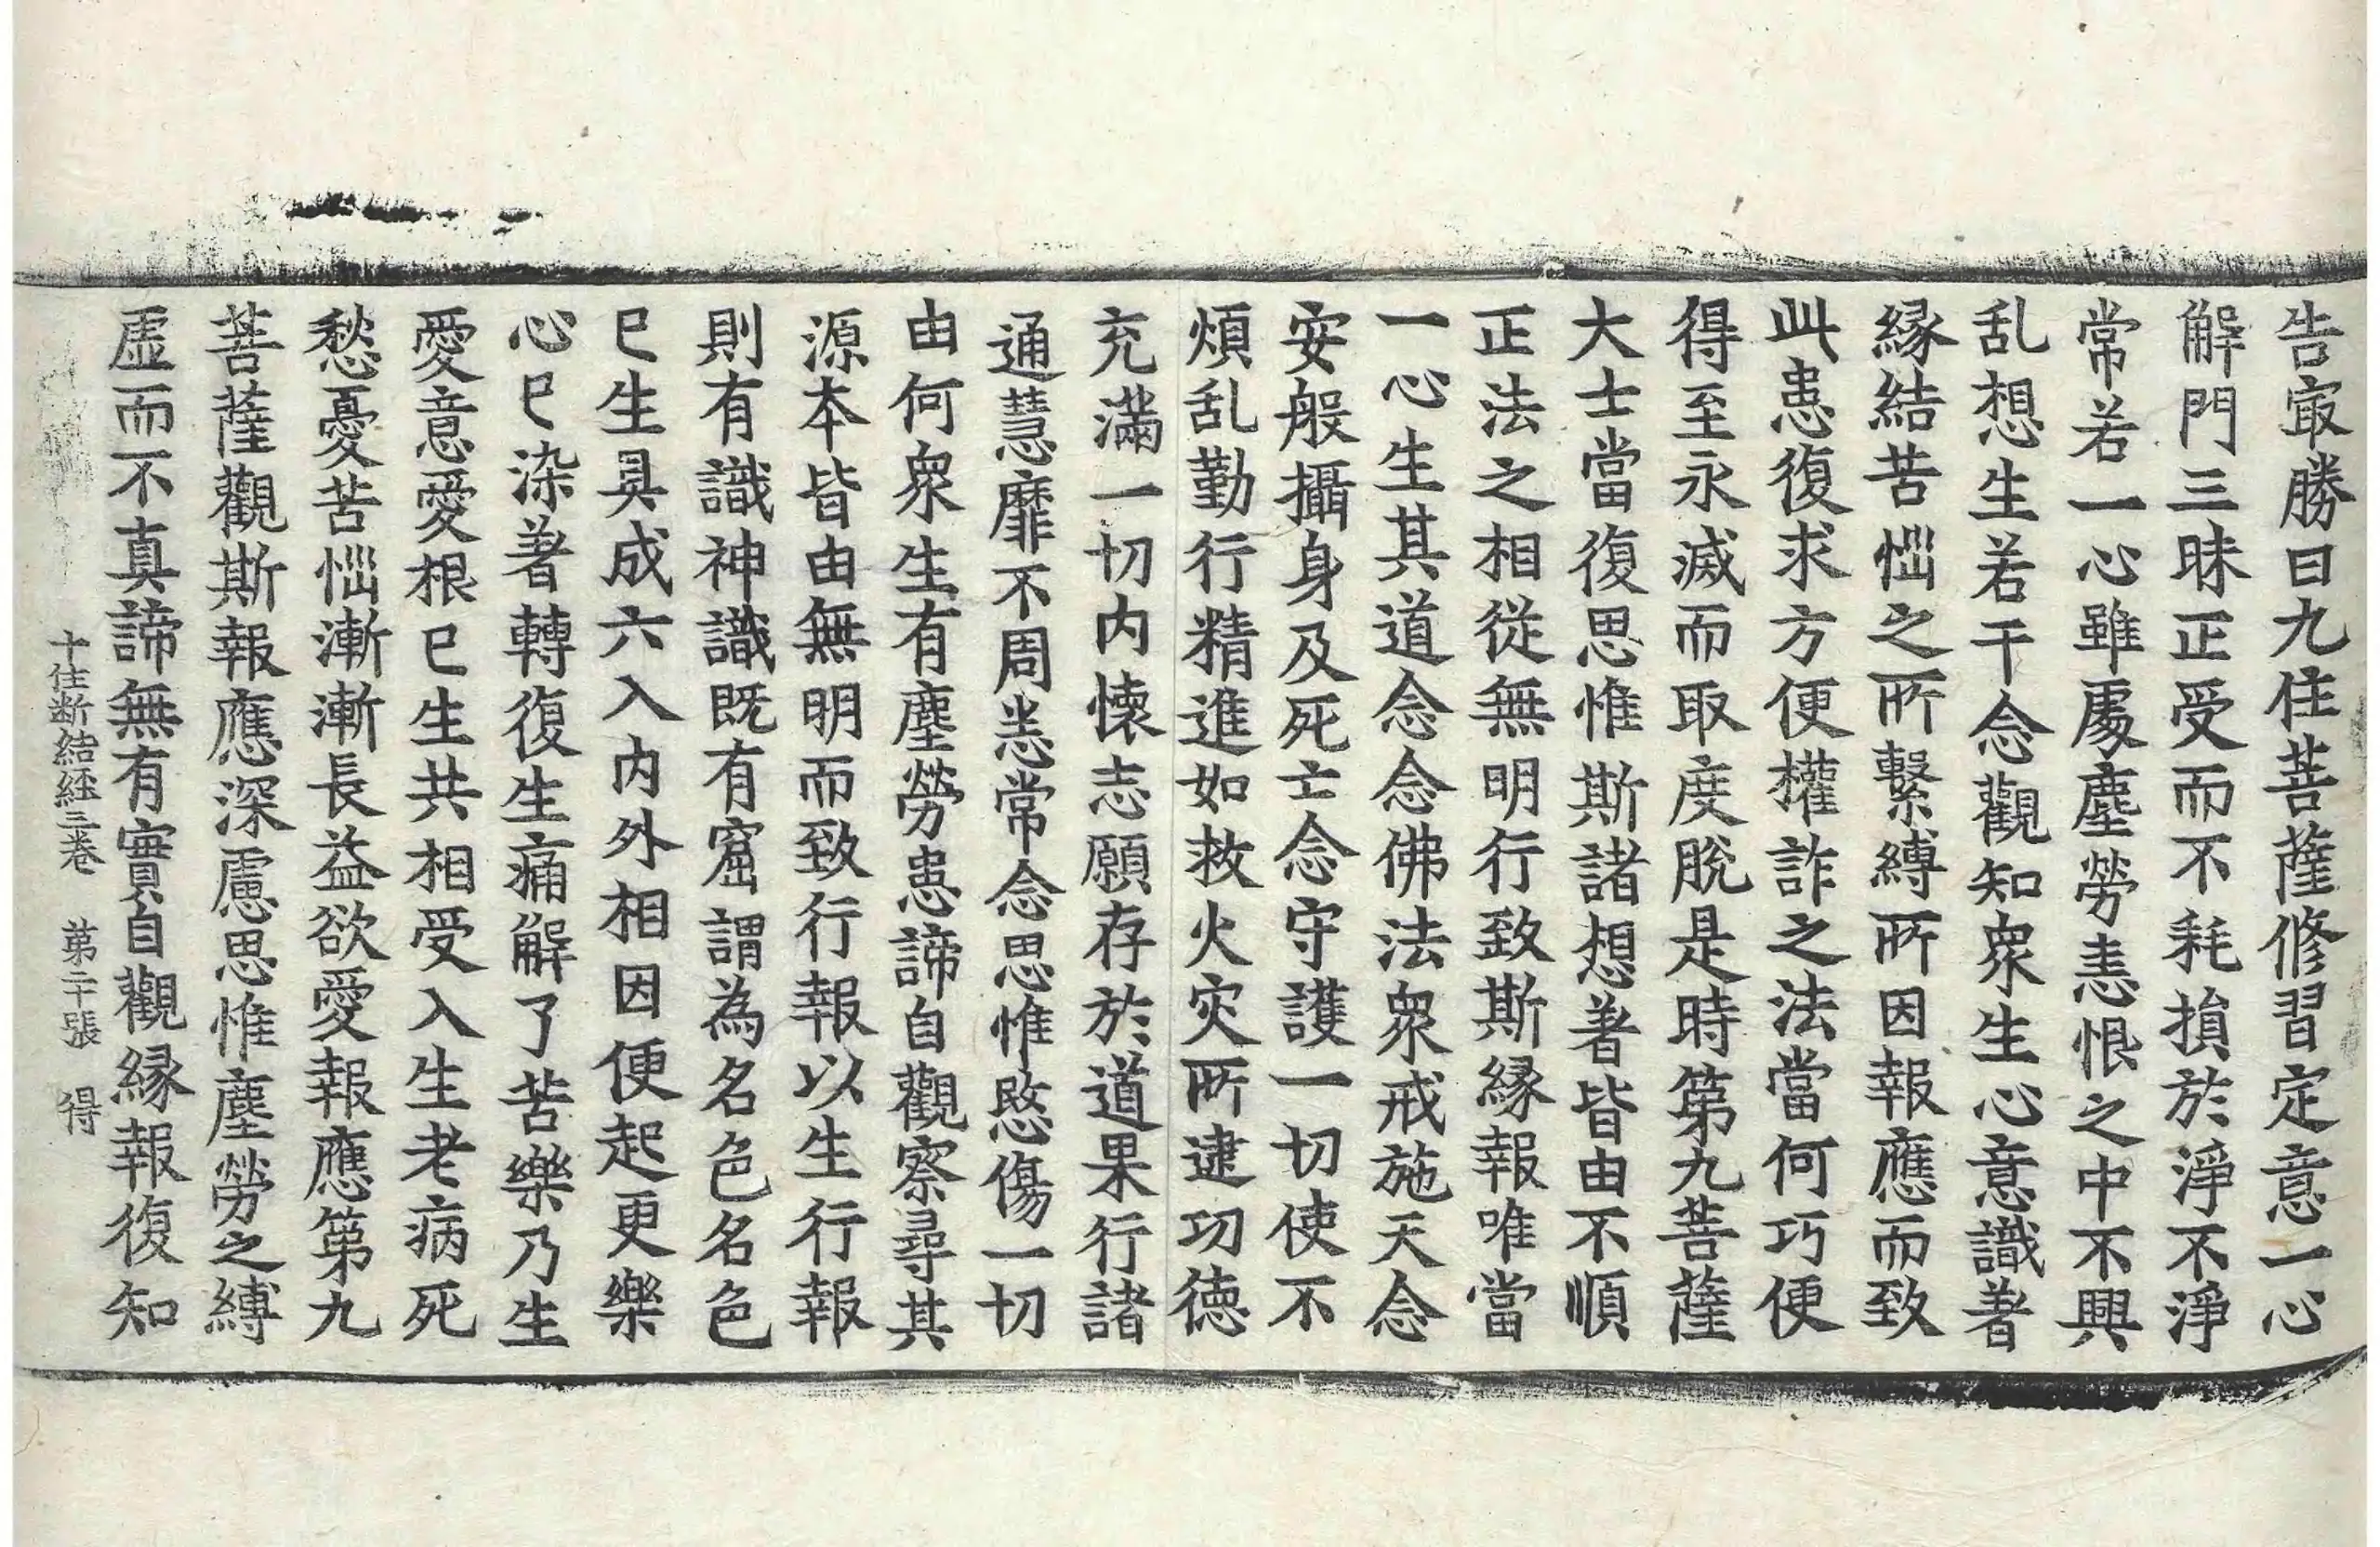 告㝡勝曰九住菩薩修習定意一心
解門三昧正受而不耗損於淨不淨
常若一心雖處塵勞恚恨之中不興
乱想生若干念觀知衆生心意識著
緣結苦惱之所繫縛所因報應而致
此患復求方便權詐之法當何巧便
得至永滅而取度脫是時第九菩薩
大士當復思惟斯諸想著皆由不順
正法之相從無明行致斯緣報唯當
一心生其道念念佛法衆戒施天念
安般攝身及死亡念守護一切使不
煩乱勤行精進如救火灾所逮功德
充滿一切內懷志願存於道果行諸
通慧靡不周悉常念思惟愍傷一切
由何衆生有塵勞患諦自觀察尋其
源本皆由無明而致行報以生行報
則有識神識既有窟謂為名色名色
已生具成六入內外相因便起更樂
心已染著轉復生痛解了苦樂乃生
愛意愛根已生共相受入生老病死
愁憂苦惱漸漸長益欲愛報應第九
菩薩觀斯報應深慮思惟塵勞之縛
虛而不真諦無有實自觀緣報復知
十住断結経三卷 第二十張 得